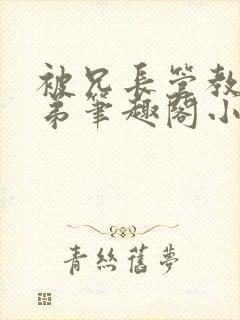 被兄长管教
弟筆趣閣小
青絲舊夢